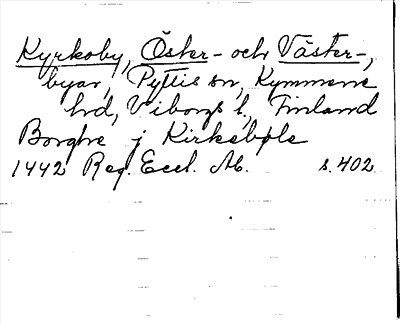 Kyrkoby, Öster- och Väster-,
byar, Pyttis sn, Kymmene
hd, Viborgs l., Finland
Borghe j Kirkebøle
1442 Reg. Eccl. Ab. s. 402